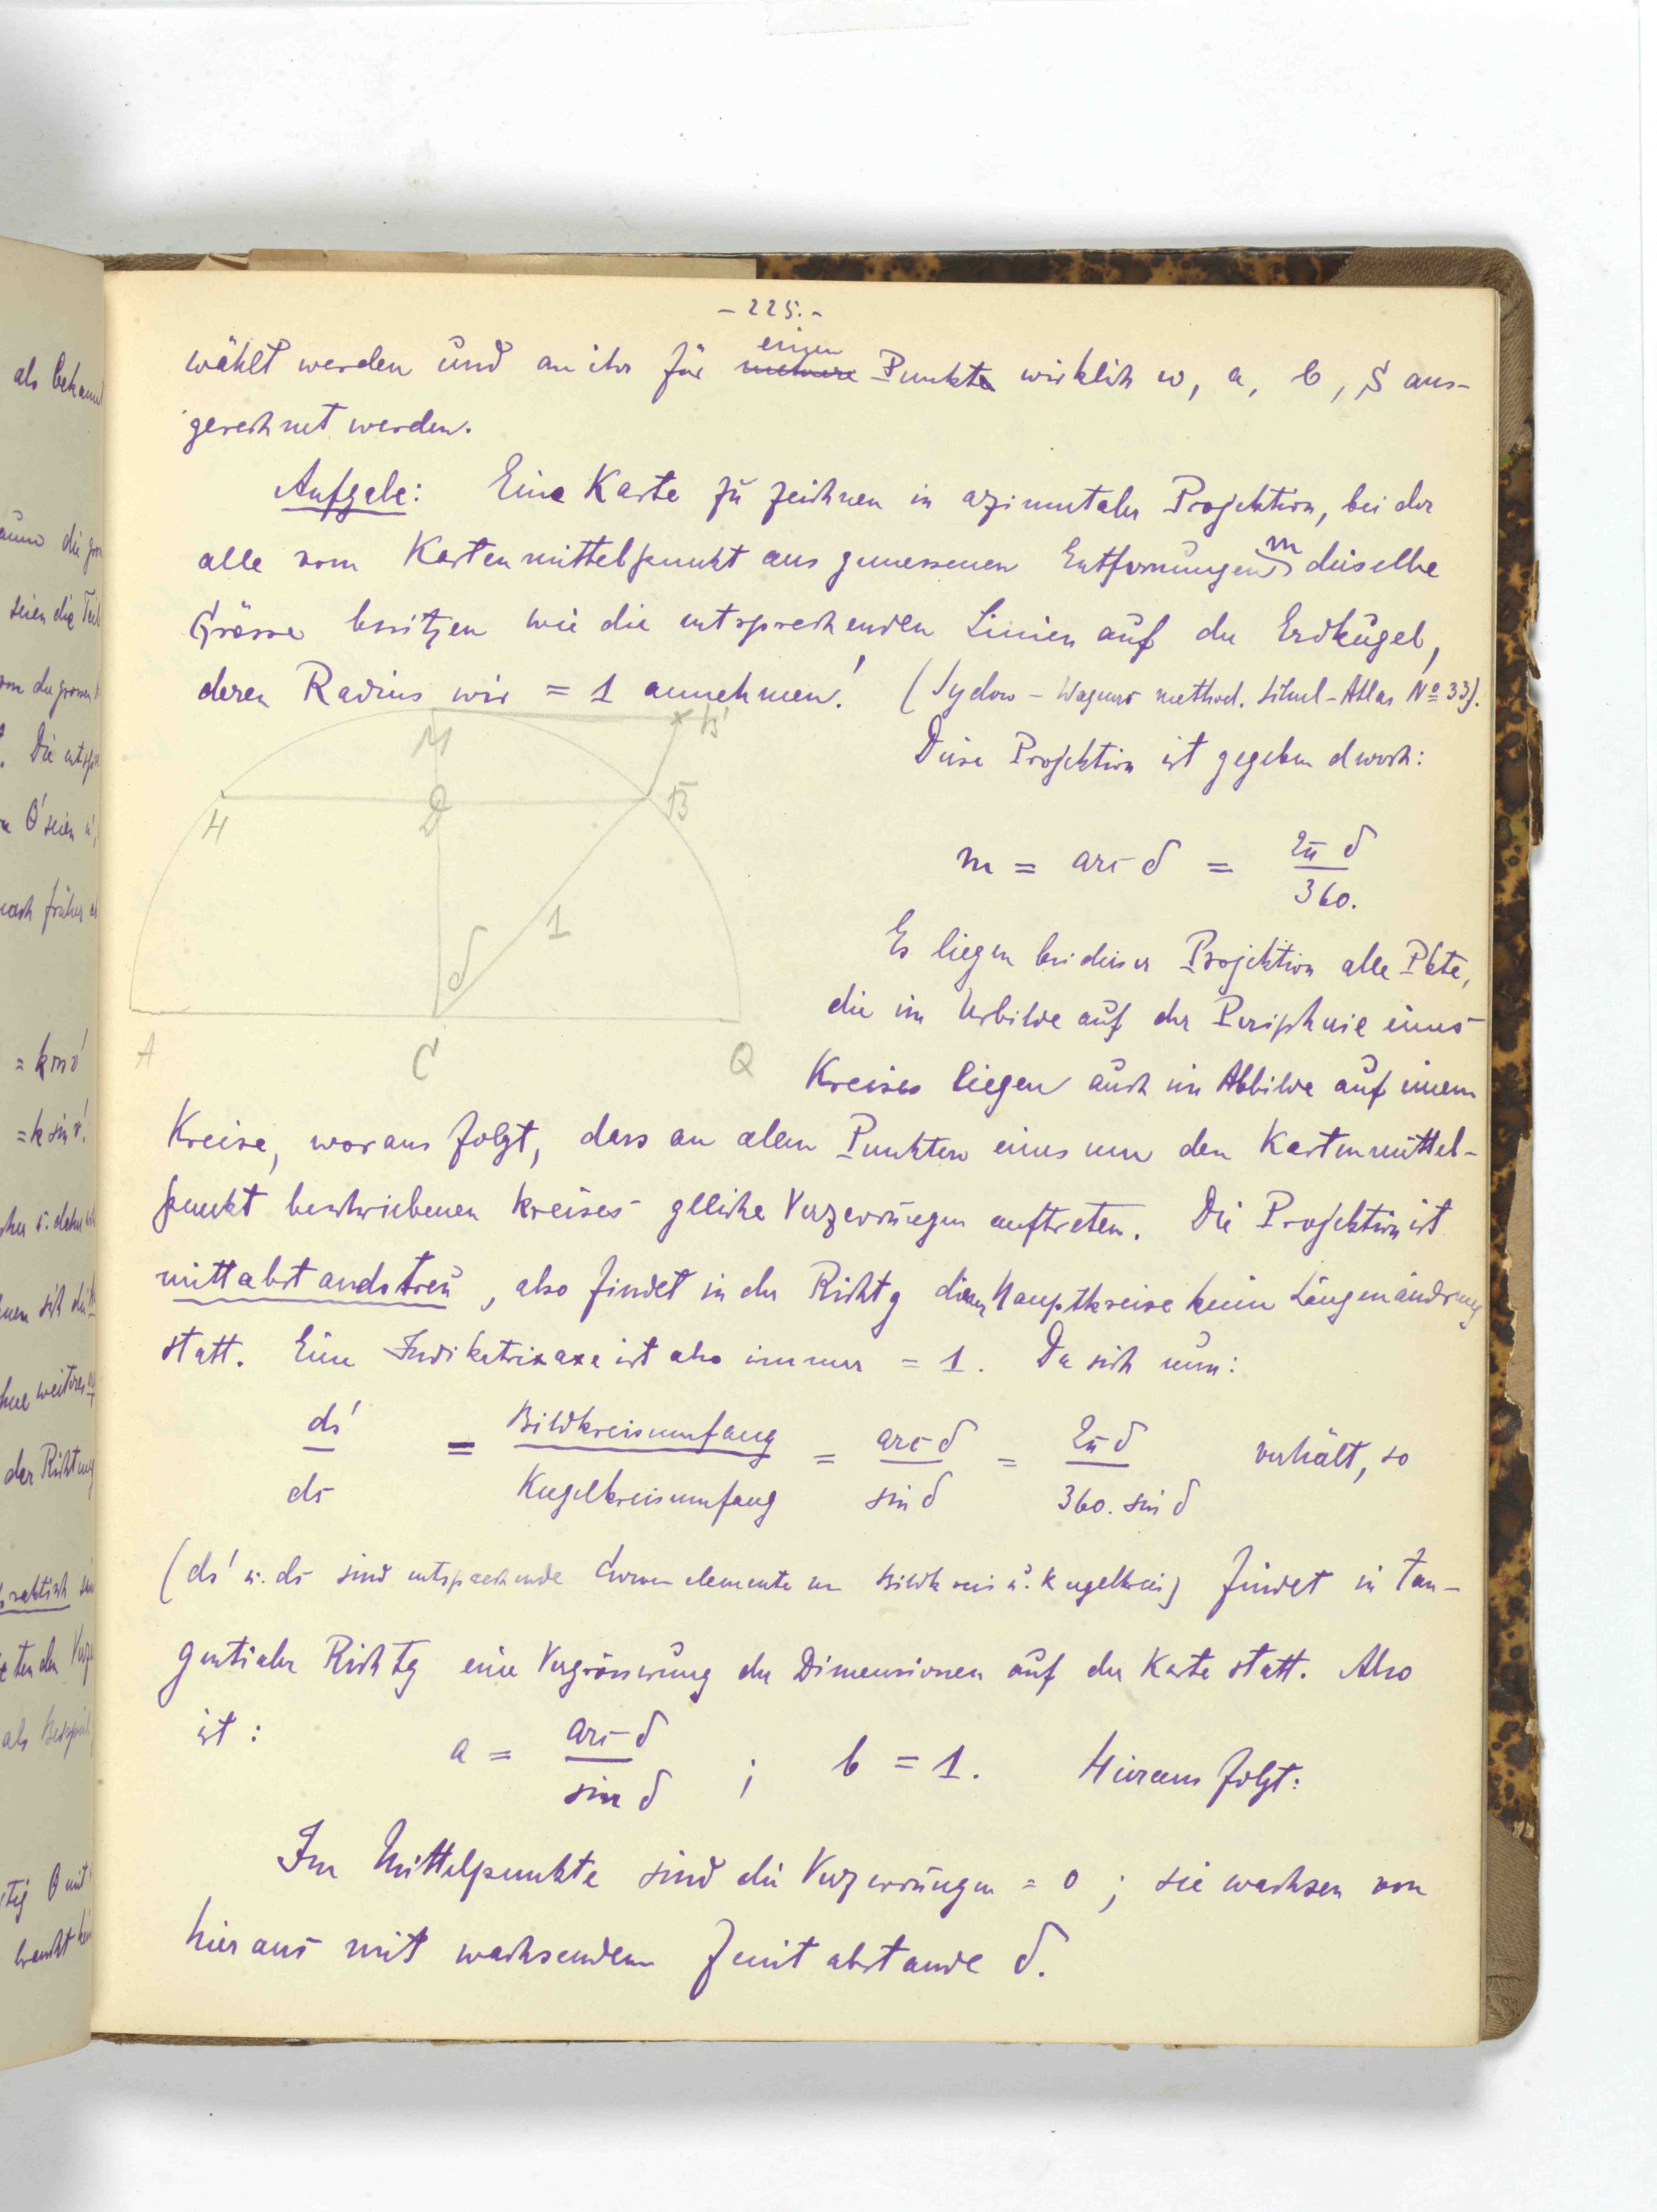 - 225. -
einen
wählt werden und an ihr für mehrere Punkte wirklich w, a, b, S aus-
gerechnet werden.
Aufgabe: Eine Karte zu zeichnen in azimutaler Projektion, bei der
alle vom Kartenmittelpunkt aus gemessenen Entfernungen m dieselbe
Grösse besitzen wie die entsprechenden Linien auf der Erdkugel,
deren Radius wir = 1 annehmen! (Sydow - Wagners method. Schul-Atlas No 33).
Diese Projektion ist gegeben durch:
m = arc δ = 2π δ / 360.
Es liegen bei dieser Projektion alle Pkte,
die im Urbilde auf der Peripherie eines
Kreises liegen auch im Abbilde auf einem
M B'
H D B
1
δ
A C Q
Kreise, woraus folgt, dass an allen Punkten eines um den Kartenmittel-
punkt beschriebenen Kreises gleiche Verzerrungen auftreten. Die Projektion ist
mittabstandstreu, also findet in der Richtg dieser Hauptkreise keine Längenändrung
statt. Eine Indikatrixaxe ist also immer = 1. Da sich nun:
ds' / ds = Bildkreisumfang / Kugelkreisumfang = arc δ / sin δ = 2π δ / 360. sin δ verhält, so
(ds' u. ds sind entsprechende Curvenelemente von Bildkreis u. Kugelkreis) findet in tan-
gentialer Richtg eine Vergrösserung der Dimensionen auf der Karte statt. Also
ist: a = arc δ / sin δ ; b = 1. Hieraus folgt:
Im Mittelpunkte sind die Verzerrungen = 0 ; sie wachsen von
hier aus mit wachsendem Zenitabstande δ.
als bekannt
seien die Teil
. Die entspr
= k sin v'.
der Richtung
als Beispiel